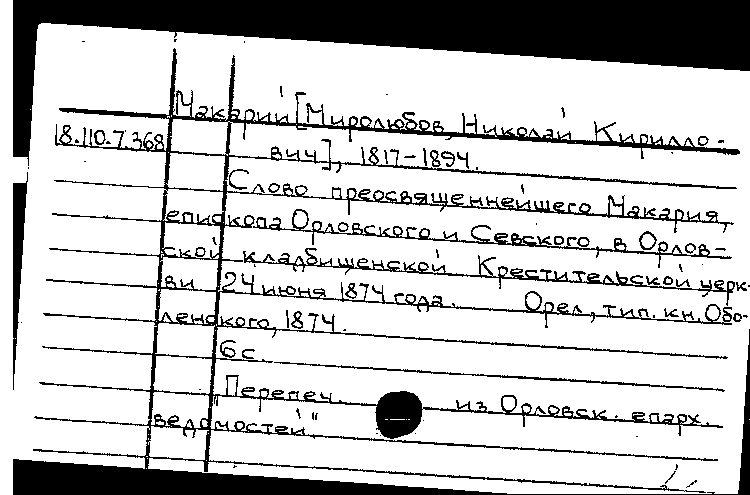 Макарий [Миролюбов, Николай Кирилло-
18.110.7.368
вич], 1817-1894.
Слово преосвященнейшего Макария,
епископа Орловского и Севского, в Орлов-
ской кладбищенской Крестительской церк-
ви 24 июня 1874 года. Орел, тип. кн. Обо-
ленского, 1874.
6 с.
„Перепеч. из Орловск. епарх.
ведомостей".